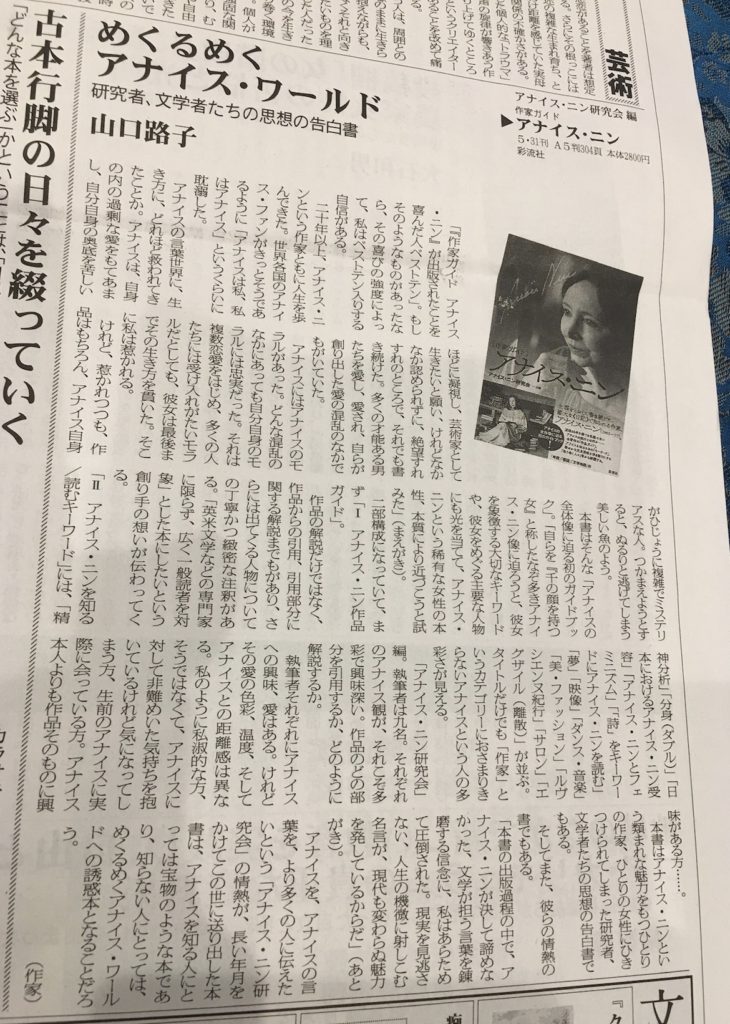 芸術
アナイス・ニン研究会 編
作家ガイド
▶アナイス・ニン
5・31刊 A5判304頁 本体2800円
彩流社
めくるめく
アナイス・ワールド
研究者、文学者たちの思想の告白書
山口路子
「『作家ガイド アナイス
・ニン』が出版されたことを
喜んだ人ベストテン」。もし
そのようなものがあったな
ら、その喜びの強度によっ
て、私はベストテン入りする
自信がある。
二十年以上、アナイス・ニ
ンという作家とともに人生を歩
んできた。世界各国のアナイ
ス・ファンがきっとそうであ
るように「アナイスは私、私
はアナイス」というくらいに
耽溺した。
アナイスの言葉世界に、生
き方に、どれほど救われてき
たことか。アナイスは、自身
の内の過剰な愛をもてあま
し、自分自身の奥底を苦しい
ほどに凝視し、芸術家として
生きたいと願い、けれどなか
なか認められずに、絶望すれ
すれのところで、それでも書
き続けた。多くの才能ある男
たちを愛し、愛され、自らが
創り出した愛の混乱のなかで
もがいていた。
アナイスにはアナイスのモ
ラルがあった。どんな混乱の
なかにあっても自分自身のモ
ラルには忠実だった。それは
複数恋愛をはじめ、多くの人
たちには受け入れがたいモラ
ルだとしても、彼女は最後ま
でその生き方を貫いた。そこ
に私は惹かれる。
けれど、惹かれつつも、作
品はもちろん、アナイス自身
がひじょうに複雑でミステリ
アスな人。つかまえようとす
ると、ぬるりと逃げてしまう
美しい魚のよう。
本書はそんな「アナイスの
全体像に迫る初のガイドブッ
ク」。「自らを『千の顔を持つ
女』と称したなぞ多きアナイ
ス・ニン像に迫ろうと、彼女
を象徴する大切なキーワード
や、彼女をめぐる主要な人物
にも光を当てて、アナイス・
ニンという稀有な女性の本
性、本質により近づこうと試
みた」(まえがき)。
二部構成になっていて、ま
ず「Ⅰ アナイス・ニン作品
ガイド」。
作品の解説だけではなく、
作品からの引用、引用部分に
関する解説までもがあり、さ
らには出てくる人物について
の丁寧かつ緻密な注釈があ
る。「英米文学などの専門家
に限らず、広く一般読者を対
象」とした本にしたいという
創り手の想いが伝わってく
る。
「Ⅱ アナイス・ニンを知る
/読むキーワード」には、「精
神分析」「分身(ダブル)」「日
本におけるアナイス・ニン受
容」「アナイス・ニンとフェ
ミニズム」「詩」をキーワー
ドにアナイス・ニンを読む」
「夢」「映像」「ダンス・音楽」
「美・ファッション」「ルヴ
シエンヌ紀行」「サロン」「エ
グザイル(離散)」が並ぶ。
タイトルだけでも「作家」と
いうカテゴリーにおさまりき
らないアナイスという人の多
彩さが見える。
「アナイス・ニン研究会」
編。執筆者は九名。それぞれ
のアナイス観が、それこそ多
彩で興味深い。作品のどの部
分を引用するか、どのように
解説するか。
執筆者それぞれにアナイス
への興味、愛はある。けれど
その愛の色彩、温度、そして
アナイスとの距離感は異な
る。私のように私淑的な方、
そうではなくて、アナイスに
対して非難めいた気持ちを抱
いているけれど気になってし
まう方、生前のアナイスに実
際に会っている方。アナイス
本人よりも作品そのものに興
味がある方……。
本書はアナイス・ニンとい
う類まれな魅力をもつひとり
の作家、ひとりの女性にひき
つけられてしまった研究者、
文学者たちの思想の告白書で
もある。
そしてまた、彼らの情熱の
書でもある。
「本書の出版過程の中で、ア
ナイス・ニンが決して諦めな
かった、文学が担う言葉を錬
磨する信念に、私はあらため
て圧倒された。現実を見逃さ
ない、人生の機微に射しこむ
名言が、現代も変わらぬ魅力
を発しているからだ」(あと
がき)。
アナイスを、アナイスの言
葉を、より多くの人に伝えた
いという「アナイス・ニン研
究会」の情熱が、長い年月を
かけてこの世に送り出した本
書は、アナイスを知る人にと
っては宝物のような本であ
り、知らない人にとっては、
めくるめくアナイス・ワール
ドへの誘惑本となることだろ
う。
(作家)
アナイス・ニン
古本行脚の日々を綴っていく
「どんな本を選ぶ」かということには、
文